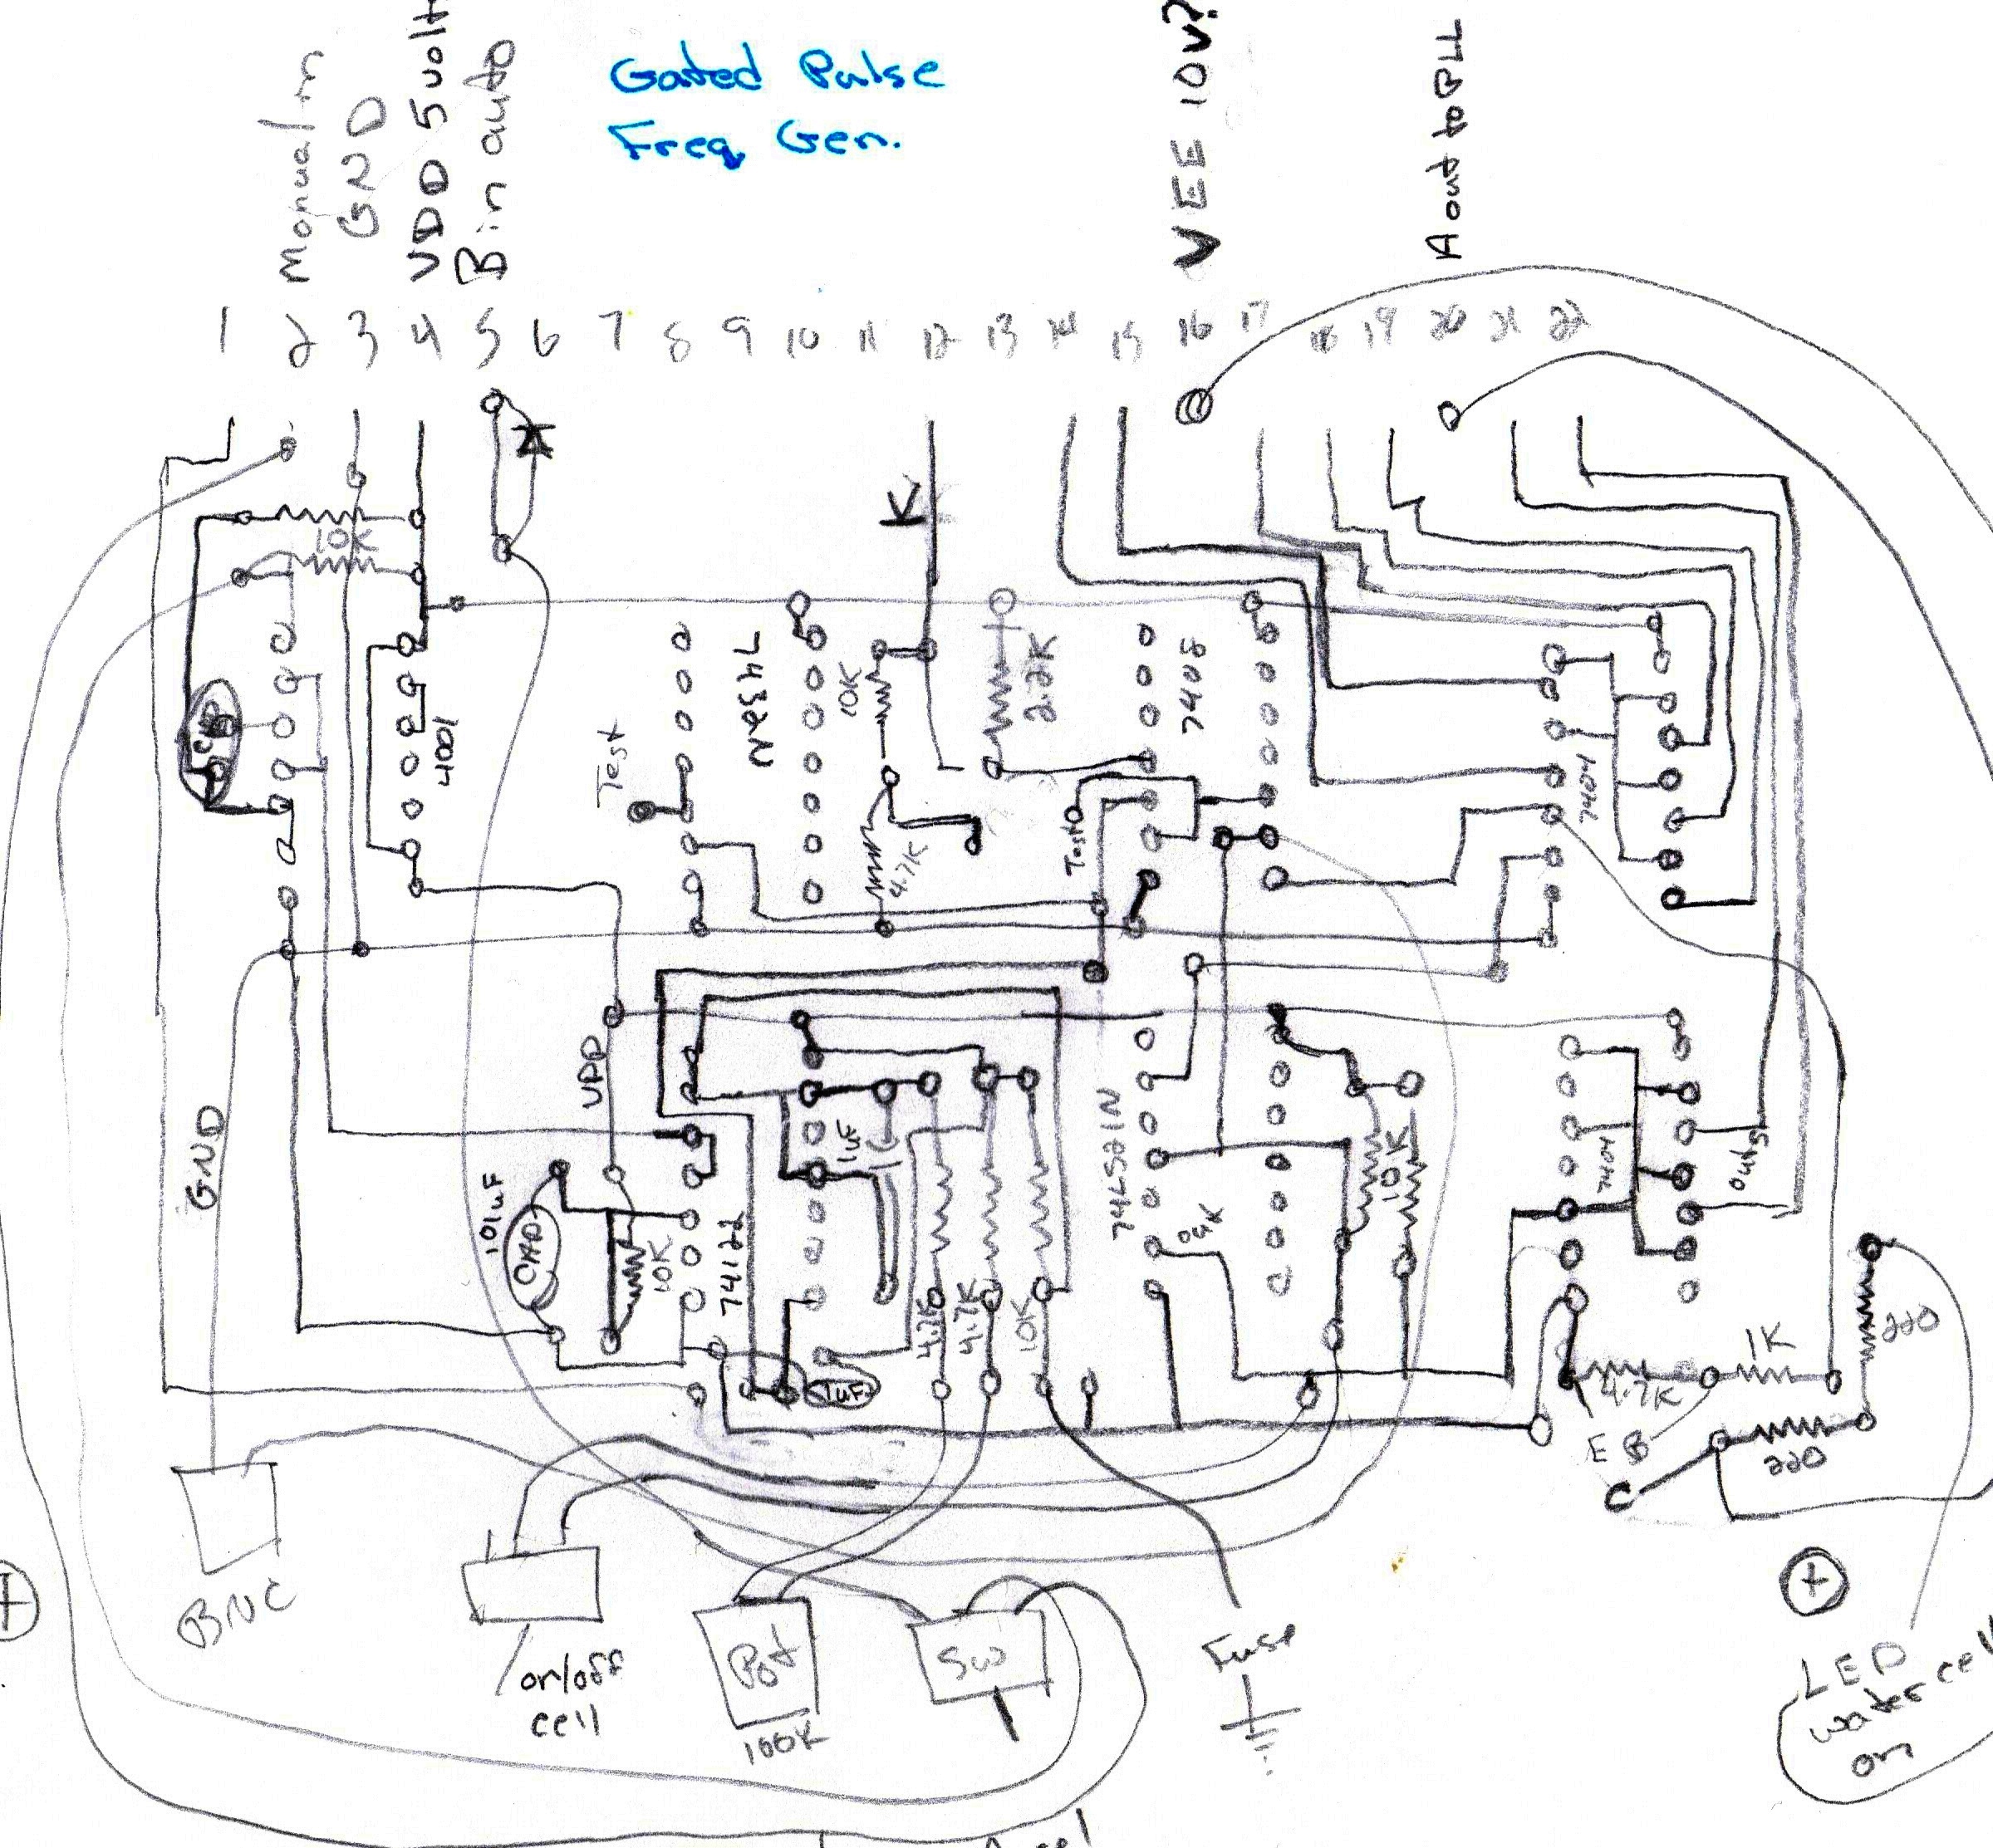 Manual in
GND
VDD 5volt
B in auto
Gated Pulse
Freq Gen.
VEE 10v?
A out to PLL
1 2 3 4 5 6 7 8 9 10 11 12 13 14 15 16 17 18 19 20 21 22
K
10K
CAP
4001
Test
10K
4.7K
2.2K
7408
Test
7404
GND
VDD
101uF
CAP
10K
74122
1uF
1uF
4.7K
4.7K
10K
74LS21N
10K
7404
outs
4.7K
1K
220
220
E B
C
BNC
on/off
cell
Pot
100K
SW
Fuse
+
+
LED
water cell
on